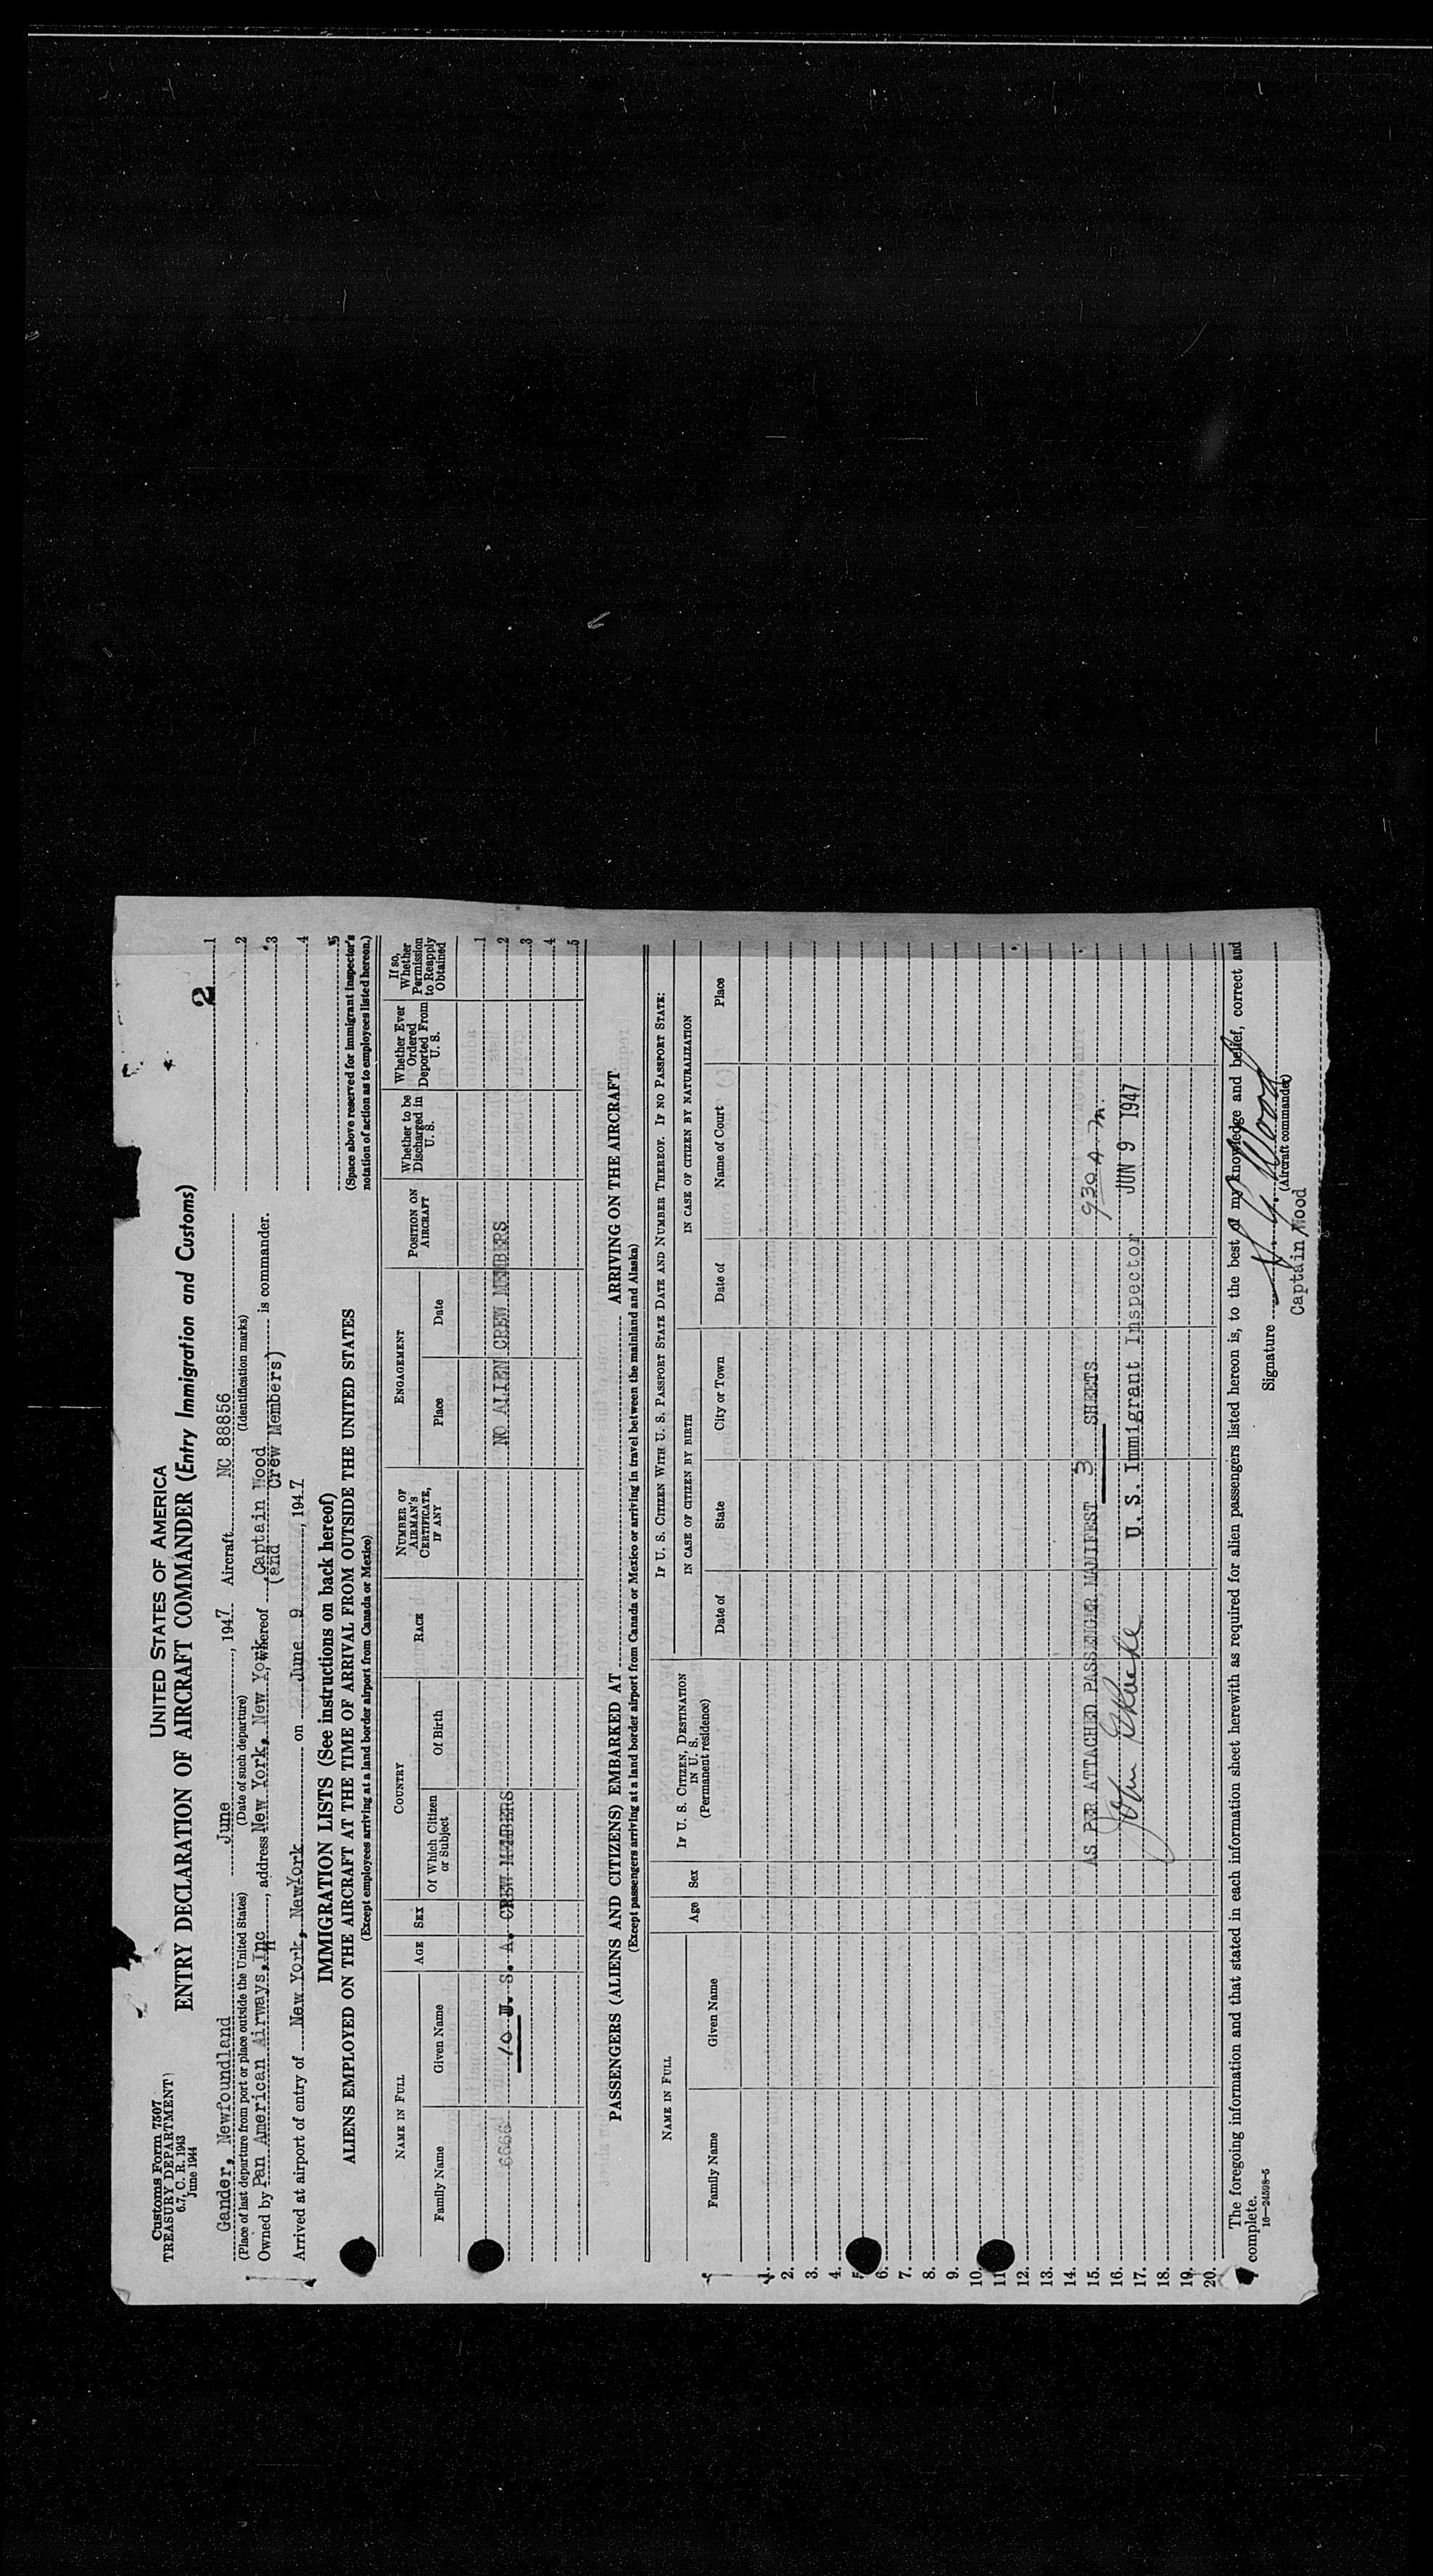 Customs Form 7507
TREASURY DEPARTMENT
6.7, C. R. 1943
June 1944
UNITED STATES OF AMERICA
ENTRY DECLARATION OF AIRCRAFT COMMANDER (Entry Immigration and Customs)
2
Gander, Newfoundland June , 1947 Aircraft NC 88856
(Place of last departure from port or place outside the United States) (Date of such departure) (Identification marks)
Owned by Pan American Airways, Inc , address New York, New York, whereof Captain Wood is commander.
(and Crew Members)
Arrived at airport of entry of New York, NewYork on June 9 , 1947
1
2
3
4
5
(Space above reserved for immigrant inspector's
notation of action as to employees listed hereon.)
IMMIGRATION LISTS (See instructions on back hereof)
ALIENS EMPLOYED ON THE AIRCRAFT AT THE TIME OF ARRIVAL FROM OUTSIDE THE UNITED STATES
(Except employees arriving at a land border airport from Canada or Mexico)
NAME IN FULL
Family Name
Given Name
AGE
SEX
COUNTRY
Of Which Citizen or Subject
Of Birth
RACE
NUMBER OF AIRMAN'S CERTIFICATE, IF ANY
ENGAGEMENT
Place
Date
POSITION ON AIRCRAFT
Whether to be Discharged in U. S.
Whether Ever Ordered Deported From U. S.
If so, Whether Permission to Reapply Obtained
1
10 U. S. A. CREW MEMBERS NO ALIEN CREW MEMBERS 2
3
4
5
PASSENGERS (ALIENS AND CITIZENS) EMBARKED AT ARRIVING ON THE AIRCRAFT
(Except passengers arriving at a land border airport from Canada or Mexico or arriving in travel between the mainland and Alaska)
NAME IN FULL
Family Name
Given Name
Age
Sex
IF U. S. CITIZEN, DESTINATION IN U. S.
(Permanent residence)
IF U. S. CITIZEN WITH U. S. PASSPORT STATE DATE AND NUMBER THEREOF. IF NO PASSPORT STATE:
IN CASE OF CITIZEN BY BIRTH
Date of
State
City or Town
IN CASE OF CITIZEN BY NATURALIZATION
Date of
Name of Court
Place
1.
2.
3.
4.
5.
6.
7.
8.
9.
10.
11.
12.
13.
14.
15. AS PER ATTACHED PASSENGAR MANIFEST 3 SHEETS 930 A.M.
16.
17. John U. S. Immigrant Inspector JUN 9 1947
18.
19.
20.
The foregoing information and that stated in each information sheet herewith as required for alien passengers listed hereon is, to the best of my knowledge and belief, correct and
complete.
16—24598-5
Signature Wood
(Aircraft commander)
Captain Wood